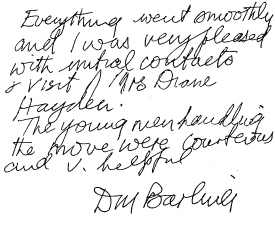 Everything went smoothly
and I was very pleased
with initial contacts
& visit Mrs Diane
Hayden.
The young men handling
the move were courteous
and v. helpful
DM